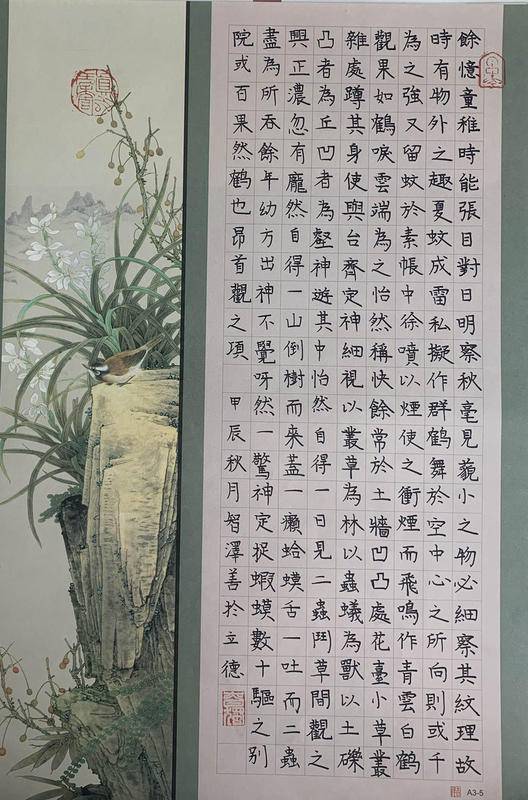 餘憶童稚時能張目對日明察秋毫見藐小之物必細察其紋理故
時有物外之趣夏蚊成雷私擬作群鶴舞於空中心之所向則或千
為之強又留蚊於素帳中徐噴以煙使之衝煙而飛鳴作青雲白鶴
觀果如鶴唳雲端為之怡然稱快餘常於土牆凹凸處花臺小草叢
雜處蹲其身使與台齊定神細視以叢草為林以蟲蟻為獸以土礫
凸者為丘凹者為壑神遊其中怡然自得一日見二蟲鬥草間觀之
興正濃忽有龐然自得一山倒樹而来蓋一癩蛤蟆舌一吐而二蟲
盡為所吞餘年幼方出神不覺呀然一驚神定捉蝦蟆數十驅之别
院或百果然鶴也昂首觀之項 甲辰秋月智澤善於立德
A3-5